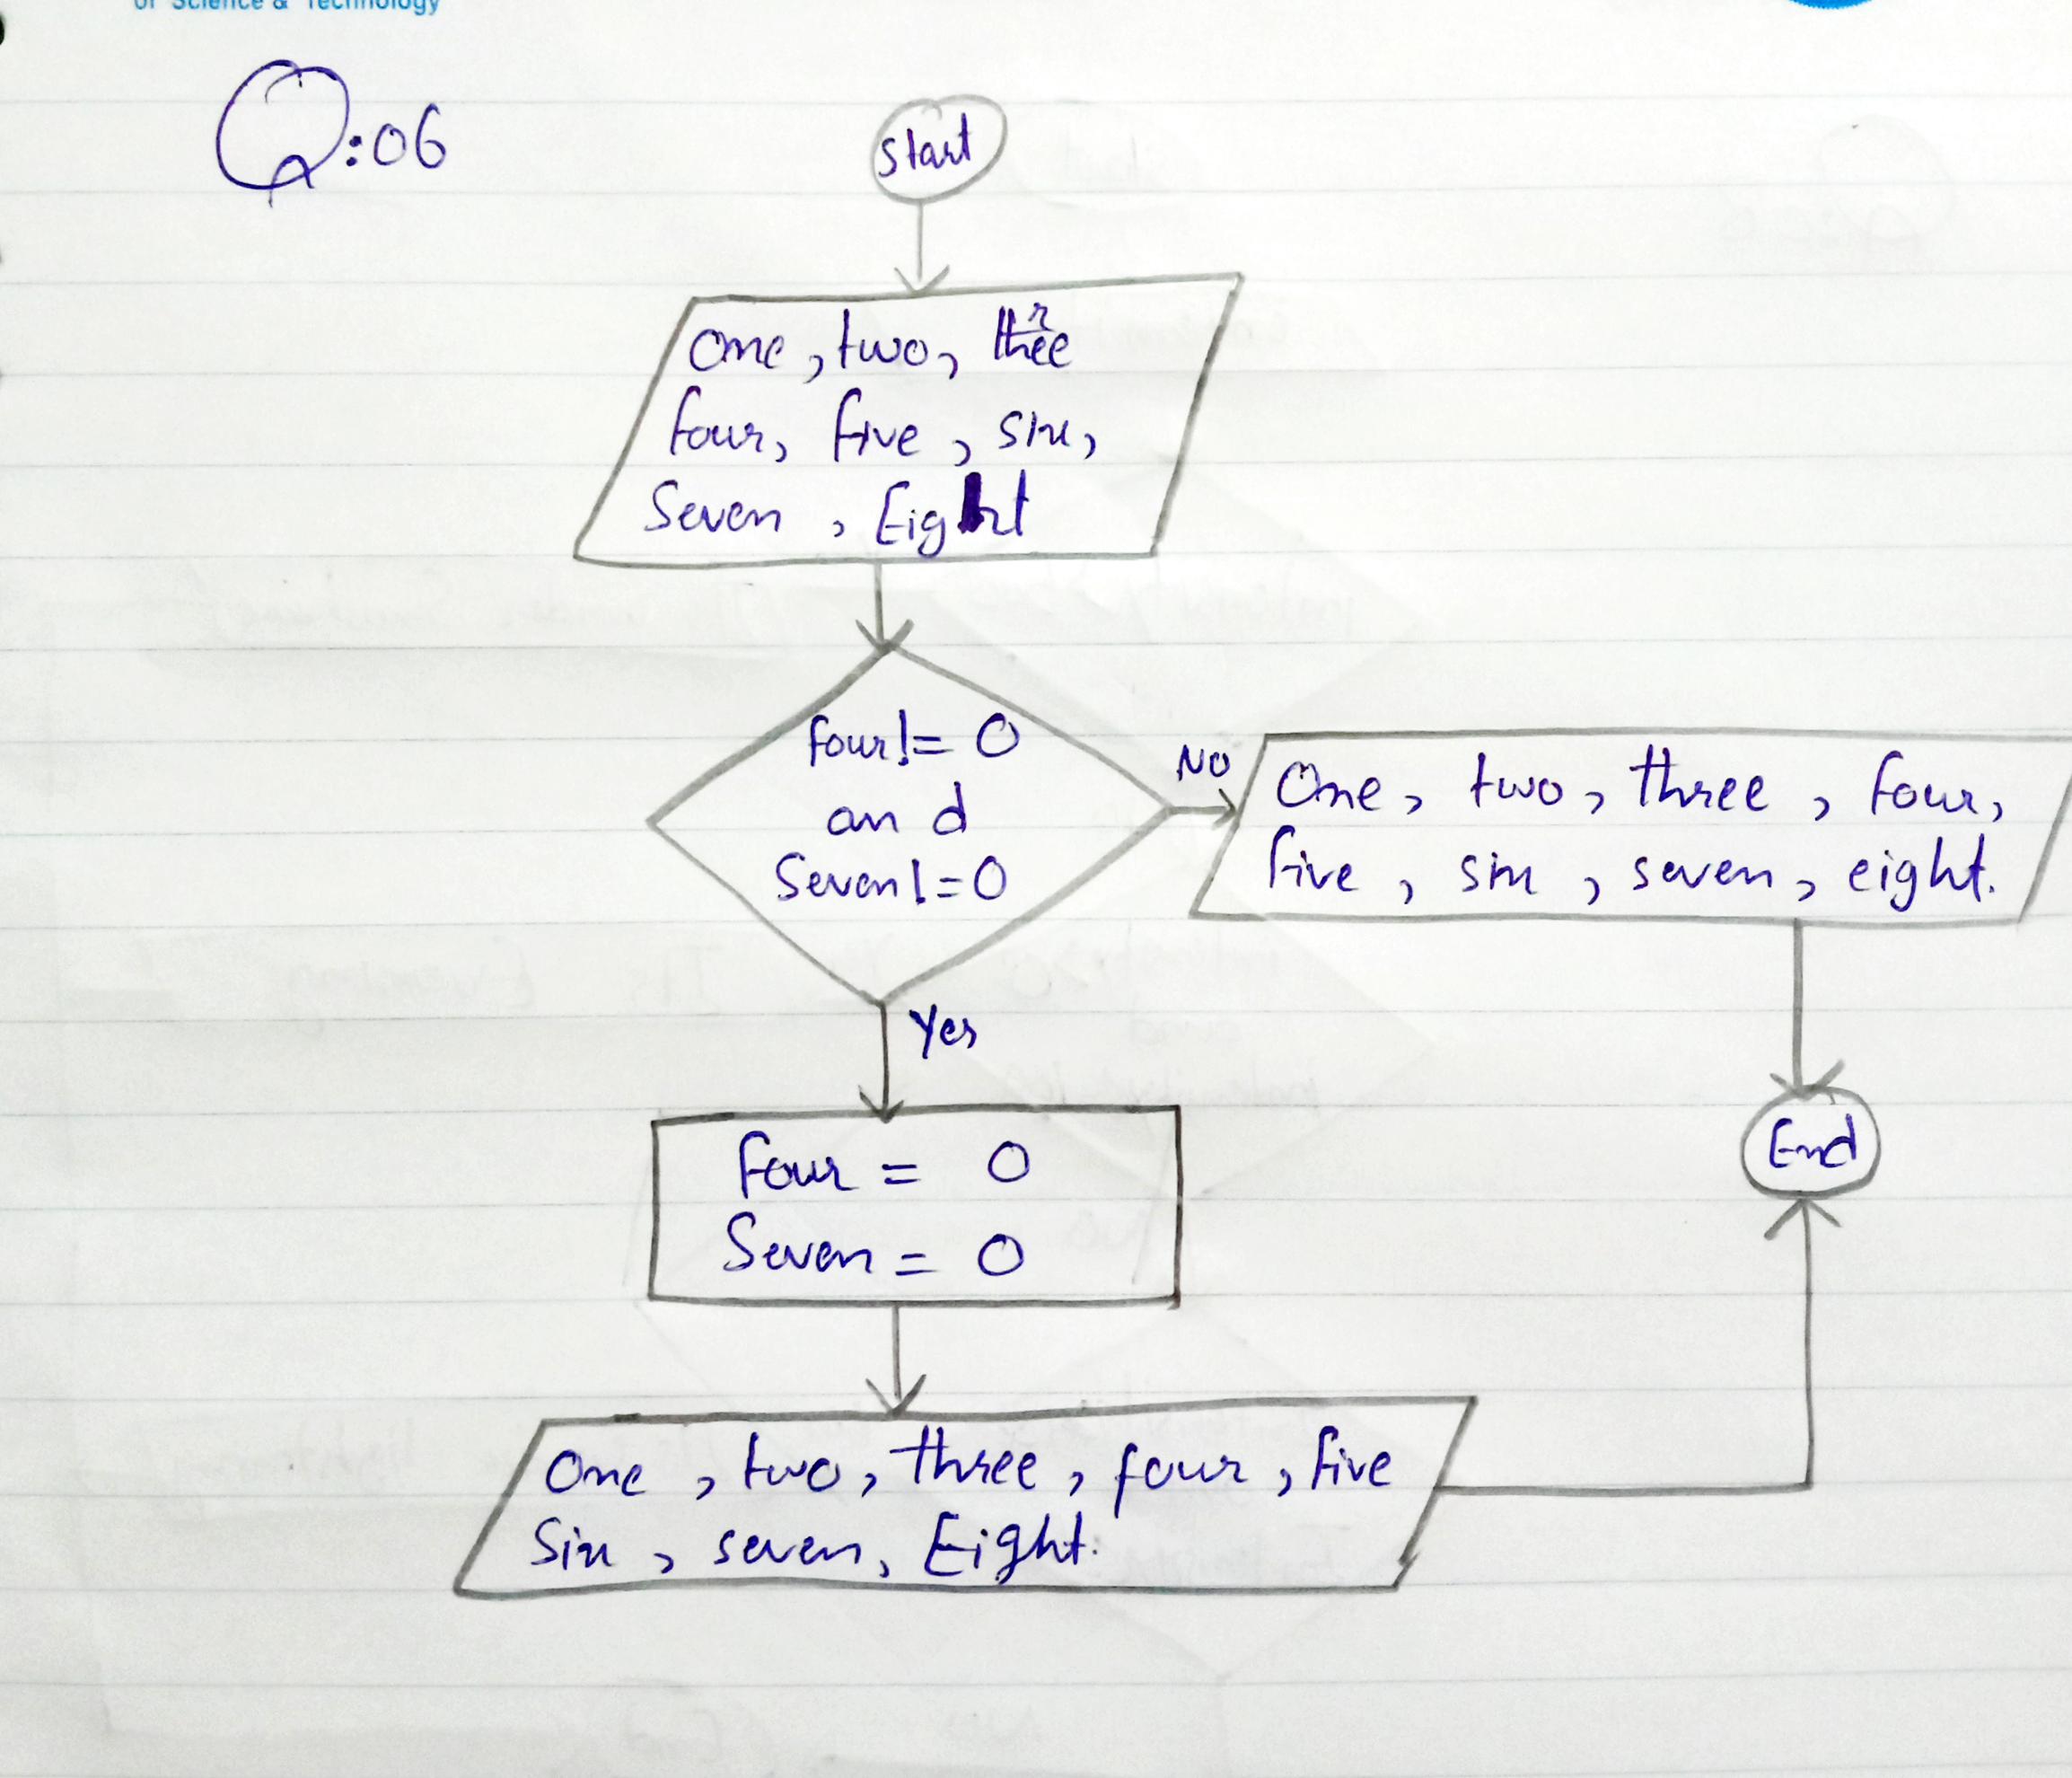 of Science & Technology
Q:06
start
One, two, three
four, five, six,
Seven, Eight
four!= 0
and
Seven!=0
No
One, two, three, four,
five, six, seven, eight.
Yes
Four = 0
Seven = 0
End
One, two, three, four, five
Six, seven, Eight.